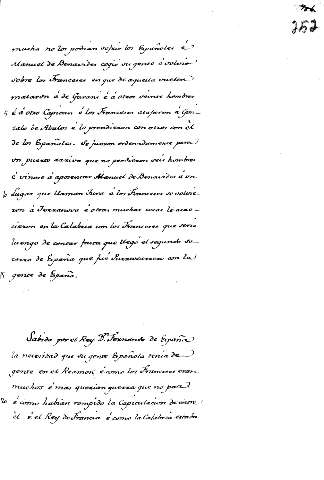 257
mucha no los podian seguir los Españoles é
Manuel de Benavides cogió su gente é volvió
sobre los Franceses en que de aquella vuelta
mataron á de Garani é á otros veinte hombres
é á otro Capitan é los Franceses atajaron á Gon-
zalo de Abalos é lo prendieron con otros con él
de los Españoles. Se juntan ordenadamente para
un puerto arriva que no perdieron seis hombres
é vinose á aposentar Manuel de Benavides á un
Lugar que llaman é los Franceses se volvie-
ron á Terranova é otras muchas cosas le acae-
cieron en la Calabria con los Franceses que seria
luengo de contar fasta que llegó el segundo so-
corro de España que fué con la
gente de España.
Sabido por el Rey Dn. Fernando de España
la necesidad que su gente Española tenia de
gente en el Reame é como los Franceses eran
muchos é mas querian guerra que no paz
é como habian rompido la Capitulacion de entre
él é el Rey de Francia é como la Calabria estaba